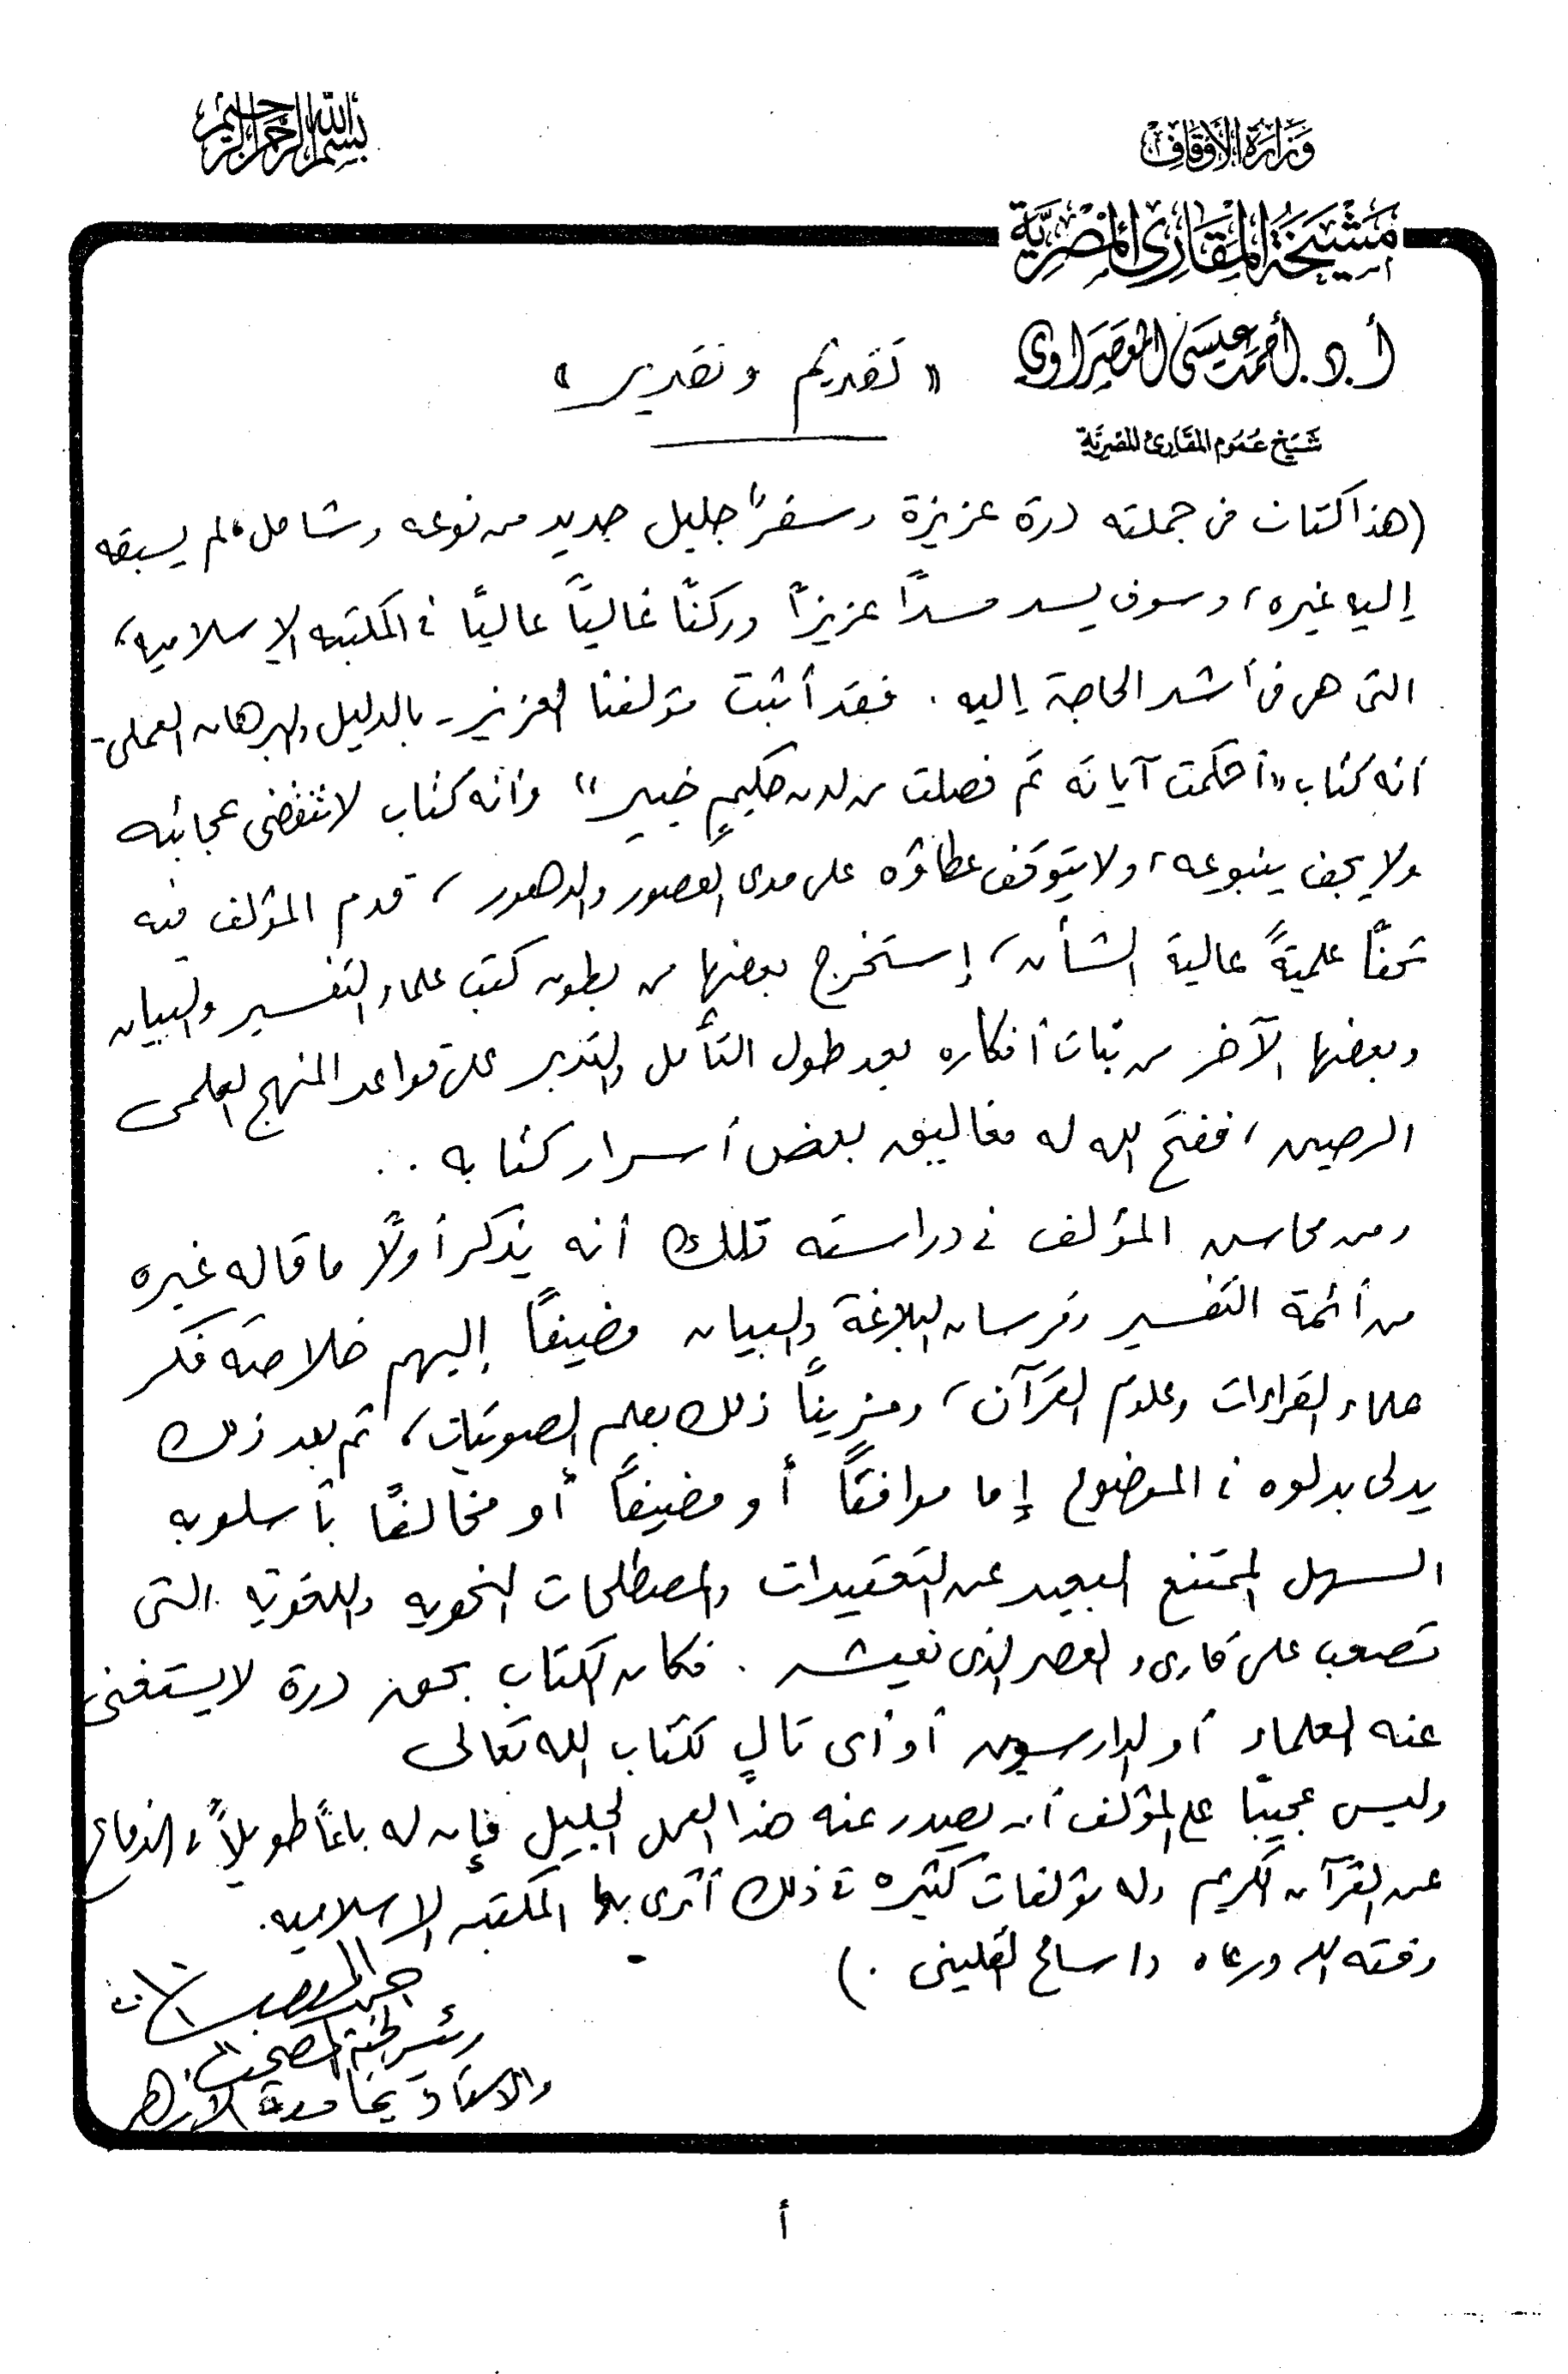 بسم الله الرحمن الرحيم
وزارة الأوقاف
مشيخة المقارئ المصرية
أ.د. أحمد عيسى المعصراوي
شيخ عموم المقارئ المصرية
« تقديم وتقدير »
(هذا كتاب فى جملته درة عزيزة وسفرًا جليل جديد من نوعه وشامل، لم يسبقه
إليه غيره، وسوف يسد مسدًا عزيزًا وركنًا غاليًا عاليًا فى المكتبه الإسلاميه،
التى هى فى أشد الحاجة إليه . فقد أثبت مؤلفنا العزيز - بالدليل والبرهان العملى -
أنه كتاب «أحكمت آياته ثم فصلت من لدن حكيمٍ خبير» وأنه كتاب لا تنقضى عجائبه
ولا يجف ينبوعه، ولا يتوقف عطاؤه على مدى العصور والدهور، قدم المؤلف فيه
تحفًا علميةً عالية الشأن، إستخرج بعضها من بطون كتب علماء التفسير والبيان
وبعضها الآخر من بنات أفكاره بعد طول التأمل والتدبر على قواعد المنهج العلمى
الرصين، ففتح الله له مغاليق بعض أسرار كتابه ..
ومن محاسن المؤلف فى دراسته تلك أنه يذكر أولاً ما قاله غيره
من أئمة التفسير وفرسان البلاغة والبيان مضيفًا إليهم خلاصة فكر
علماء القراءات وعلوم القرآن، ومزينًا ذلك بعلم الصوتيات، ثم بعد ذلك
يدلى بدلوه فى الموضوع إما موافقًا أو مضيفًا أو مخالفًا بأسلوبه
السهل الممتنع البعيد عن التعقيدات والمصطلحات النحويه واللغويه التى
تصعب على قارىء العصر الذى نعيشه . فكان الكتاب بحق درة لا يستغنى
عنه العلماء أو الدارسين أو أى تالٍ لكتاب الله تعالى
وليس عجيبًا على المؤلف أن يصدر عنه هذا العمل الجليل فإن له باعًا طويلاً فى الدفاع
عن القرآن الكريم وله مؤلفات كثيره فى ذلك أثرى بها المكتبه الإسلاميه .
وفقه الله ورعاه د/ سامح القلينى .)
أحمد المعصراوى
رئيس لجنة المصحف
والاستاذ بجامعة الازهر
أ